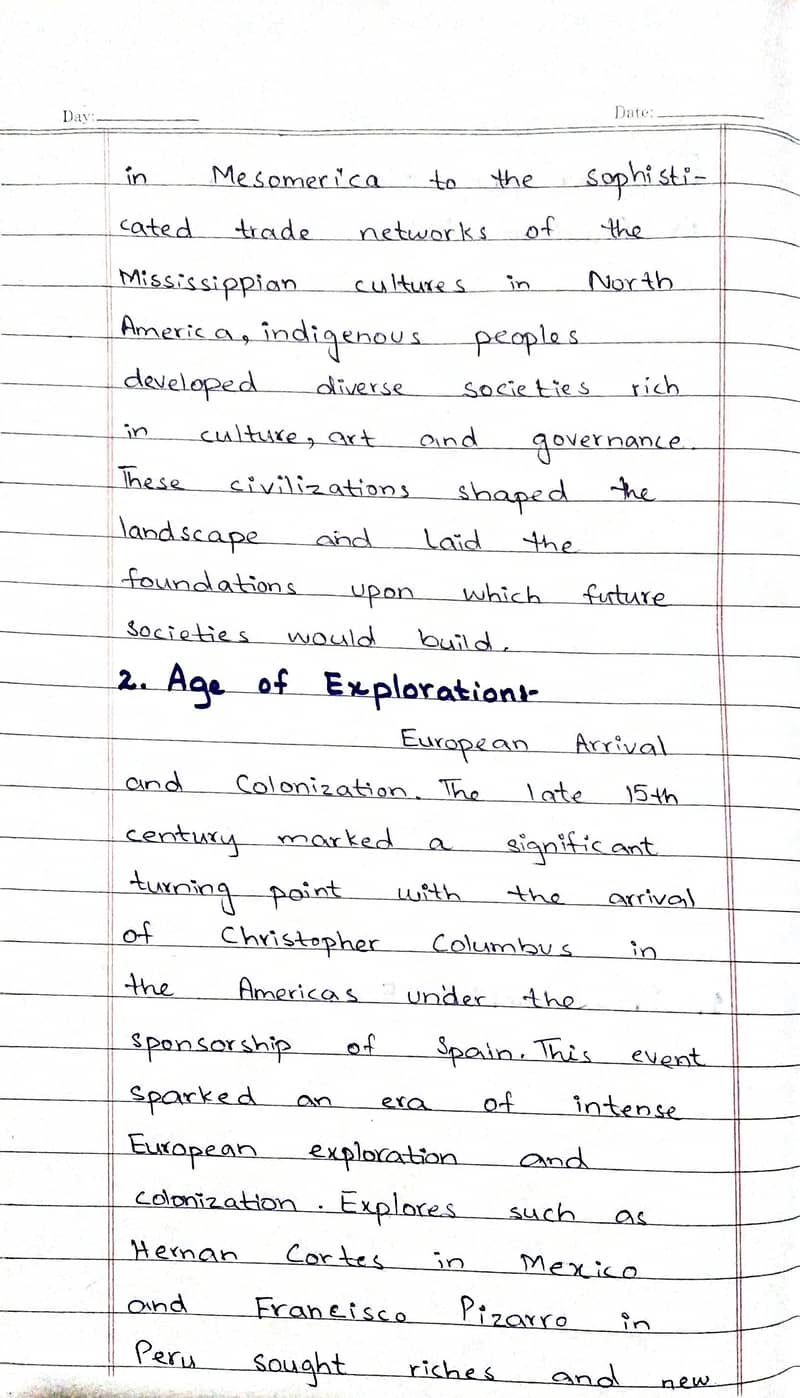 Day:
Date:
in Mesomerica to the sophisti-
cated trade networks of the
Mississippian cultures in North
America, indigenous peoples
developed diverse societies rich
in culture, art and governance.
These civilizations shaped the
landscape and laid the
foundations upon which future
societies would build.
2. Age of Exploration:-
European Arrival
and Colonization. The late 15th
century marked a significant
turning point with the arrival
of Christopher Columbus in
the Americas under the
sponsorship of Spain. This event
sparked an era of intense
European exploration and
colonization. Explores such as
Hernan Cortes in Mexico
and Francisco Pizarro in
Peru sought riches and new